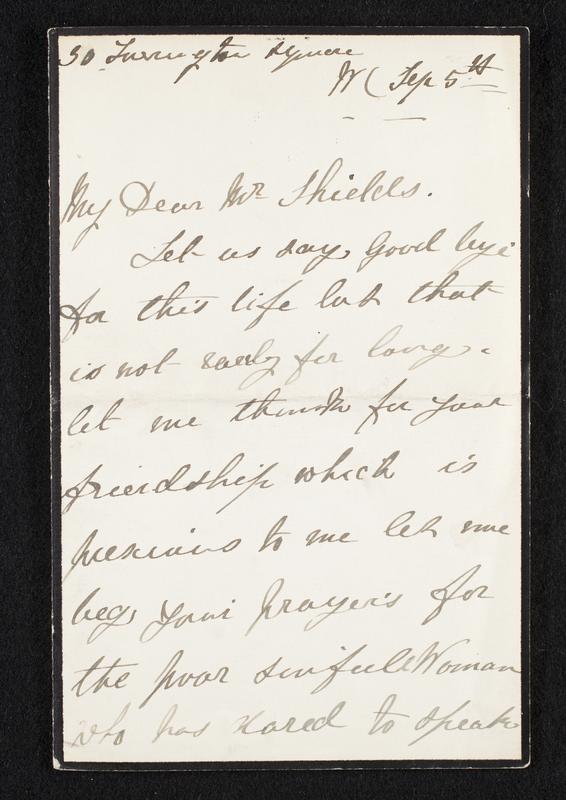 30 Torrington Square
W C Sep 5th
My Dear Mr Shields.
Let us say Good bye
for this life but that
is not really for long.
let me thank for your
friendship which is
precious to me let me
beg your prayers for
the poor sinfull Woman
who has dared to speak